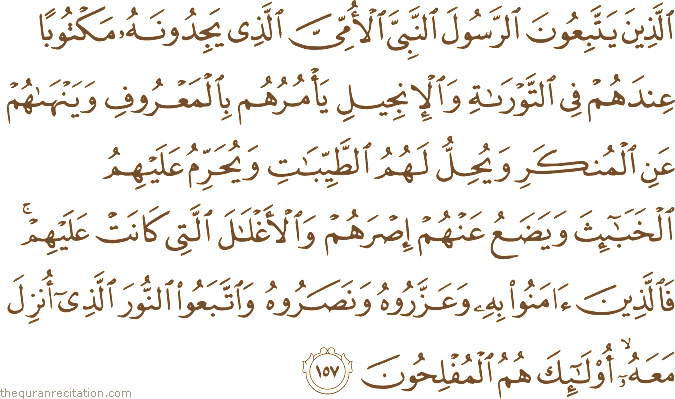 ٱلَّذِينَ يَتَّبِعُونَ ٱلرَّسُولَ ٱلنَّبِىَّ ٱلْأُمِّىَّ ٱلَّذِى يَجِدُونَهُۥ مَكْتُوبًا
عِندَهُمْ فِى ٱلتَّوْرَىٰةِ وَٱلْإِنجِيلِ يَأْمُرُهُم بِٱلْمَعْرُوفِ وَيَنْهَىٰهُمْ
عَنِ ٱلْمُنكَرِ وَيُحِلُّ لَهُمُ ٱلطَّيِّبَٰتِ وَيُحَرِّمُ عَلَيْهِمُ
ٱلْخَبَٰٓئِثَ وَيَضَعُ عَنْهُمْ إِصْرَهُمْ وَٱلْأَغْلَٰلَ ٱلَّتِى كَانَتْ عَلَيْهِمْ ۚ
فَٱلَّذِينَ ءَامَنُوا۟ بِهِۦ وَعَزَّرُوهُ وَنَصَرُوهُ وَٱتَّبَعُوا۟ ٱلنُّورَ ٱلَّذِىٓ أُنزِلَ
مَعَهُۥٓ ۙ أُو۟لَٰٓئِكَ هُمُ ٱلْمُفْلِحُونَ ١٥٧
thequranrecitation.com